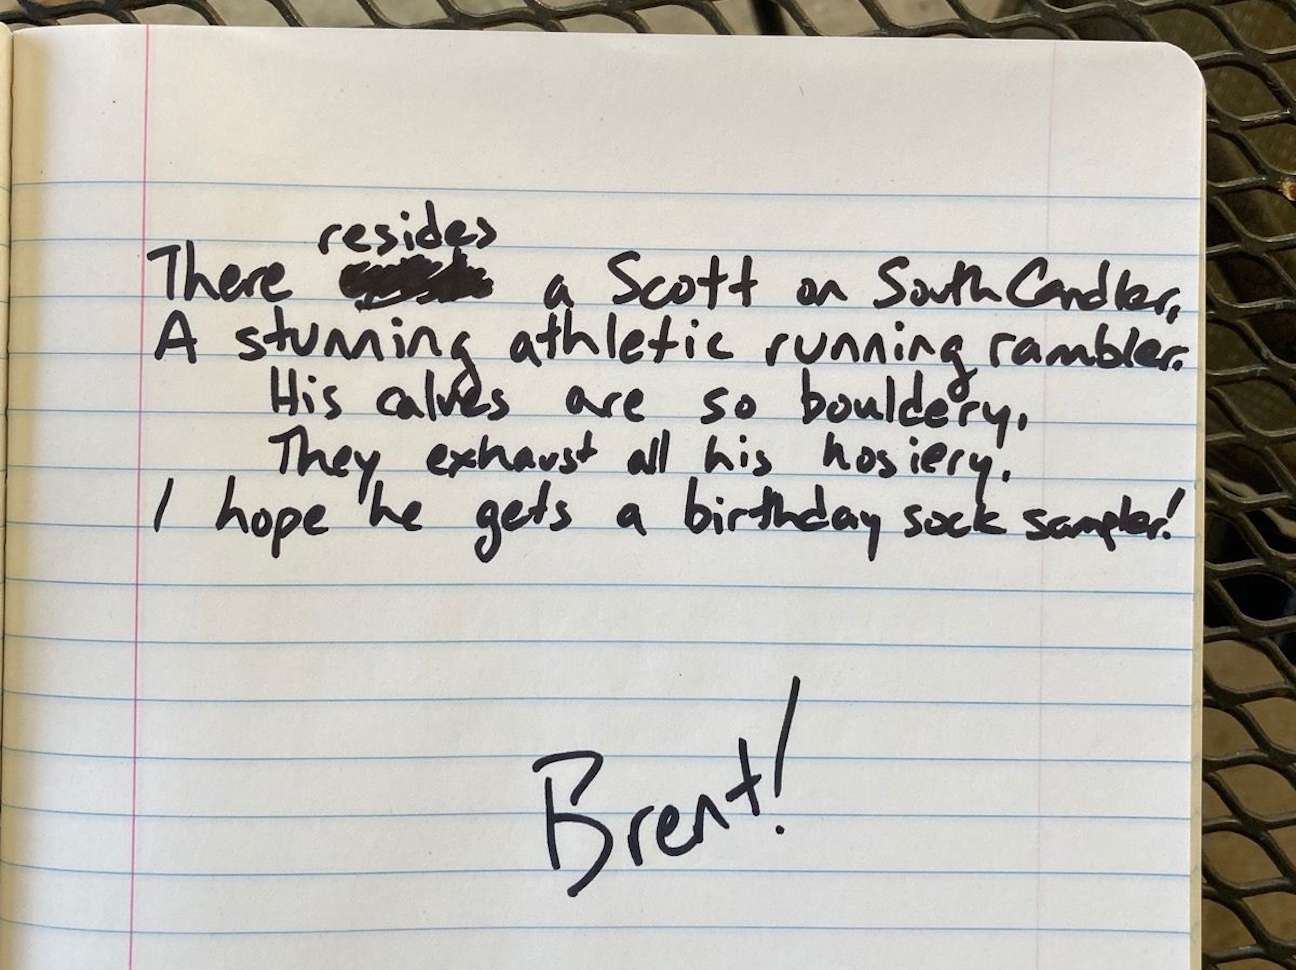 There resides a Scott on South Candler,
A stunning athletic running rambler.
His calves are so bouldery,
They exhaust all his hosiery.
I hope he gets a birthday sock sampler!
Brent!